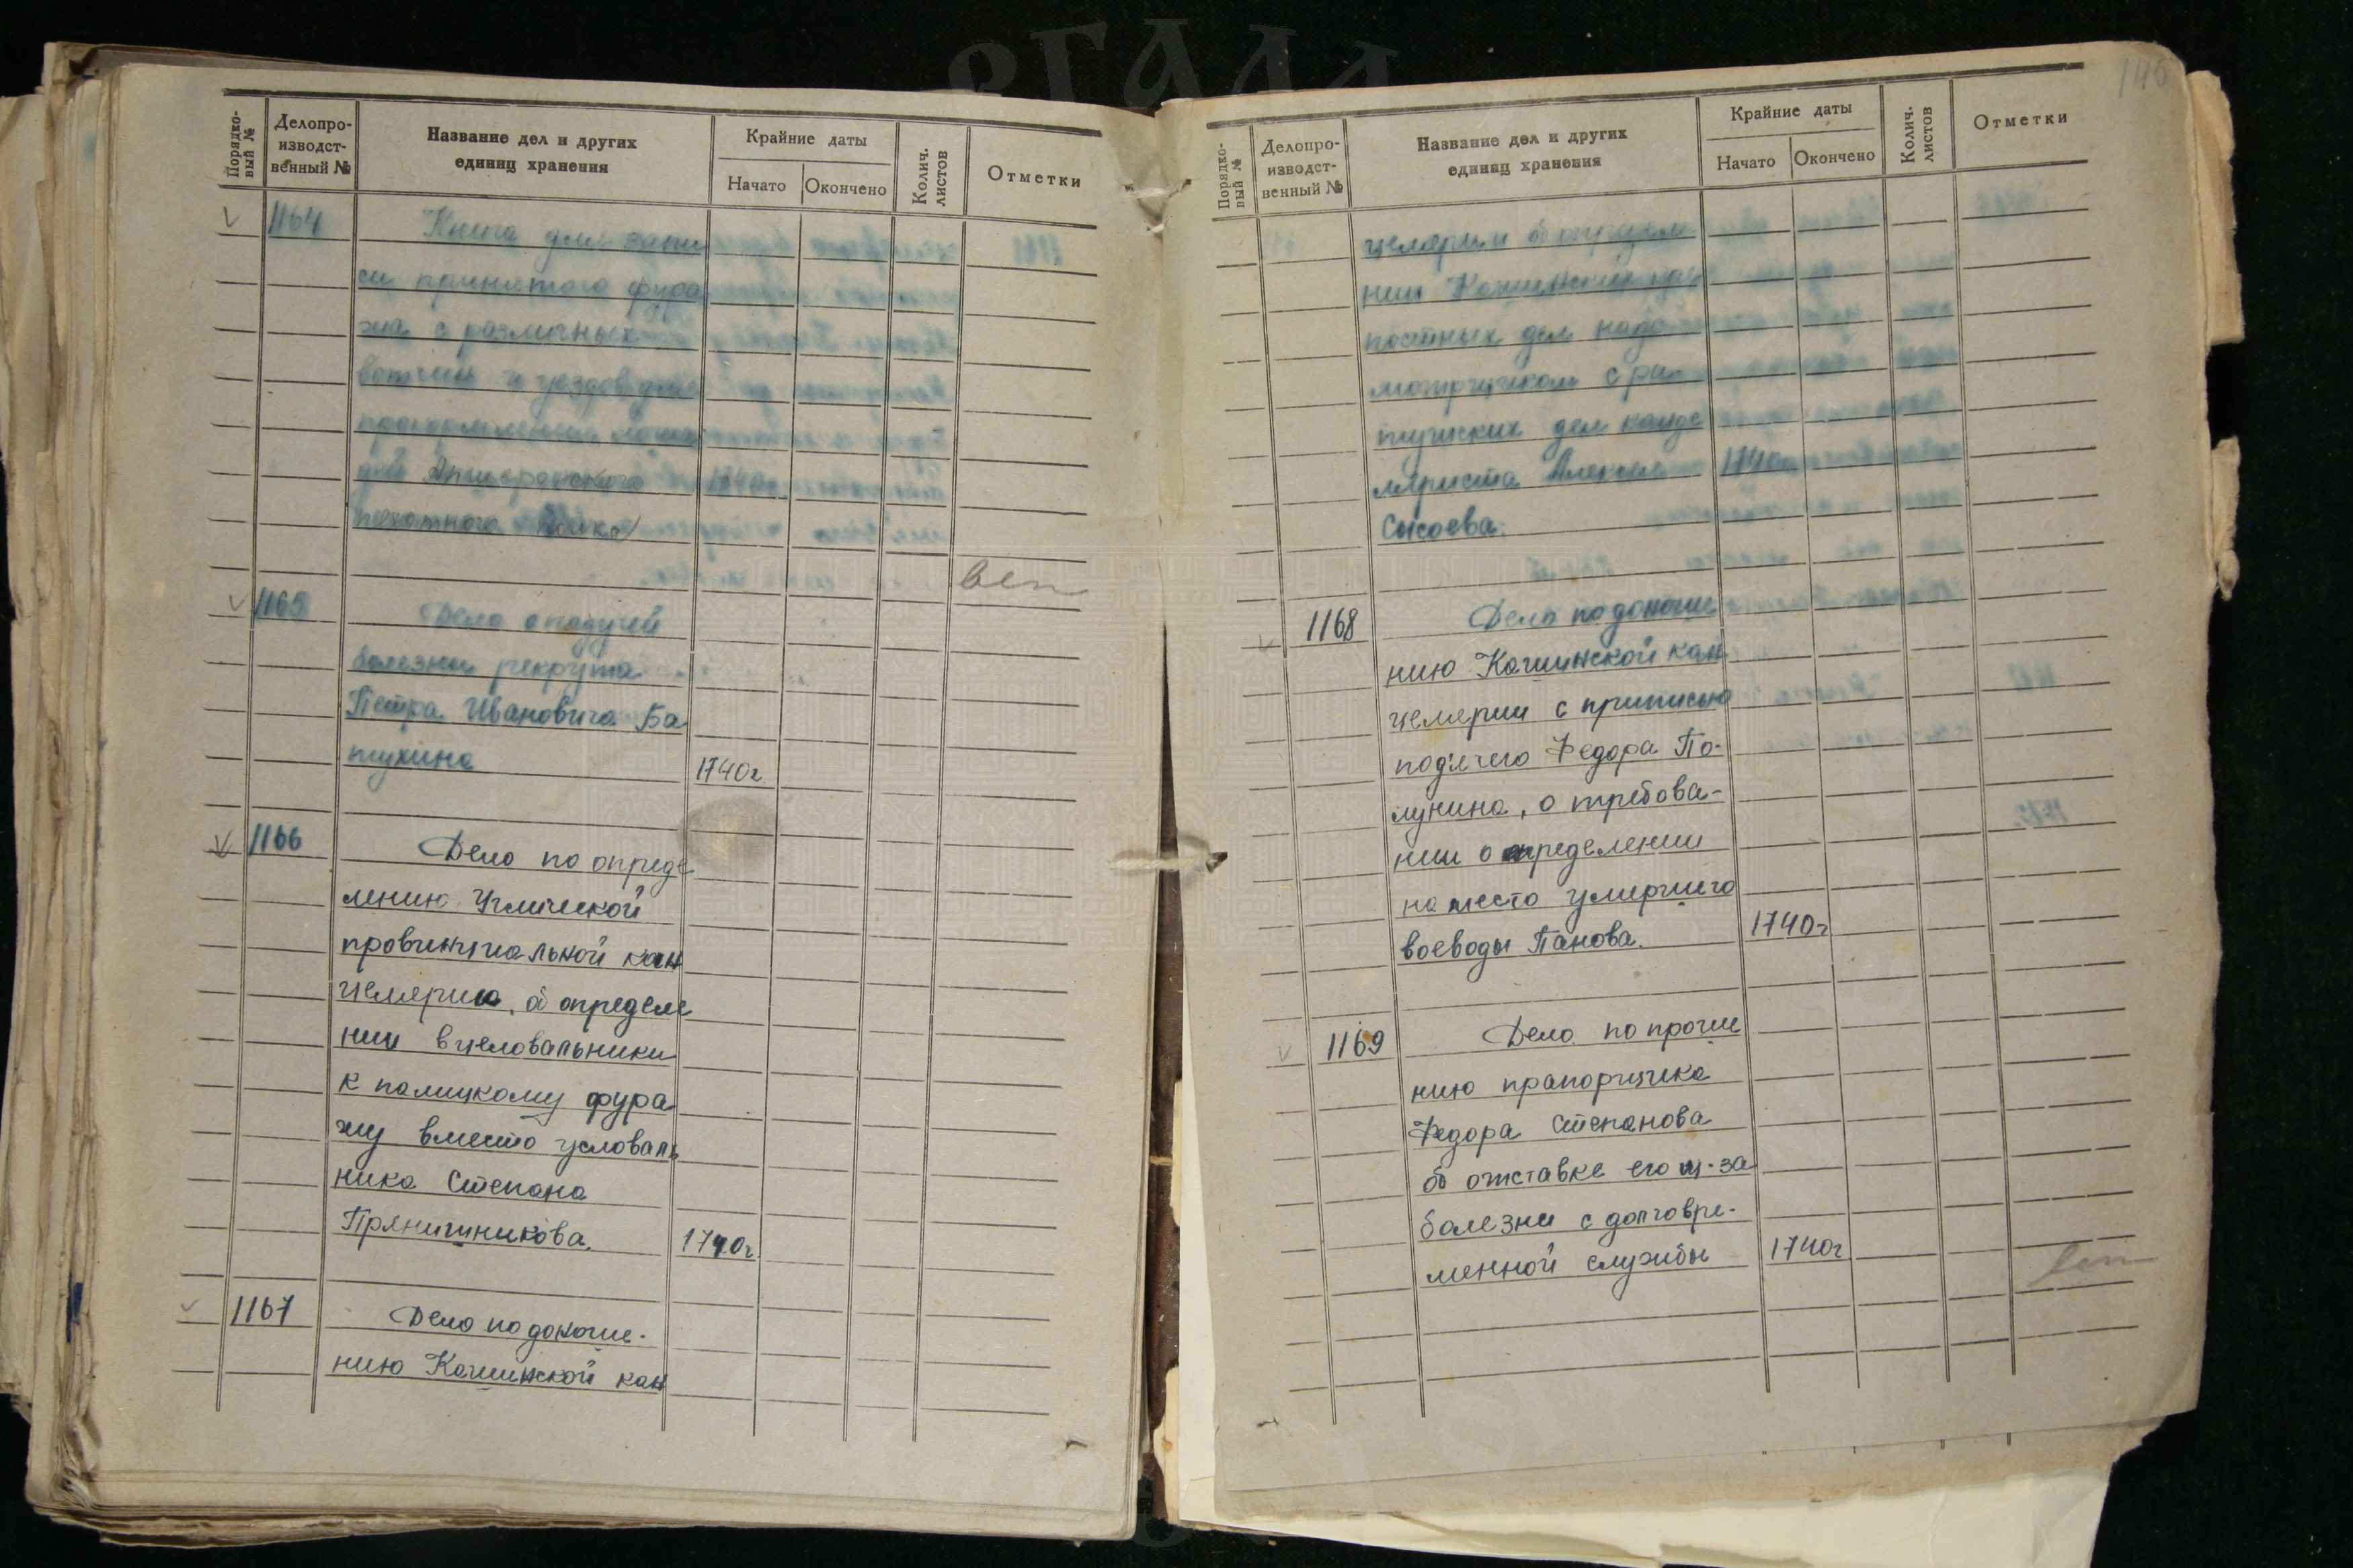 РГАДА
Порядко-
вый №
Делопро-
изводст-
венный №
Название дел и других
единиц хранения
Крайние даты
Начато
Окончено
Колич.
листов
Отметки
V 1164 Книга для запи
си принятого фура
жа с различных
вотчин и уездов для
прокормления лоша
дей Апшеронского 1740г.
пехотного полка
вет
V 1165 Дело о падучей
болезни рекрута
Петра Ивановича Ба
тухина 1740г.
V 1166 Дело по опреде
лению Угличской
провинциальной кан
целярию, об определе
нии в целовальники
к полицкому фура
жу вместо целоваль
ника Степана
Прянишникова. 1740г.
V 1167 Дело по доноше-
нию Кашинской кан
146
Порядко-
вый №
Делопро-
изводст-
венный №
Название дел и других
единиц хранения
Крайние даты
Начато
Окончено
Колич.
листов
Отметки
целярии об определе
нии Кашинских кре
постных дел надс
мотрщиком с ра
тушских дел канце
ляриста Алексея 1740г.
Сысоева.
V 1168 Дело по доноше
нию Кашинской кан
целярии с приписью
подячего Федора По-
лунина, о требова-
нии о определении
на место умершего
воеводы Панова. 1740г
V 1169 Дело по проше
нию прапорщика
Федора Степанова
об отставке его из-за
болезни с долговре-
менной службы 1740г